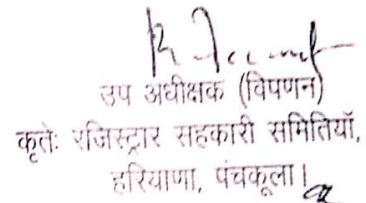 उप अधीक्षक (विपणन)
कृतेः रजिस्ट्रार सहकारी समितियाँ,
हरियाणा, पंचकूला।